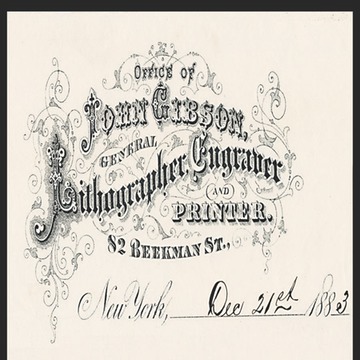 OFFICE OF
JOHN GIBSON,
GENERAL
Lithographer, Engraver
AND
PRINTER.
82 BEEKMAN ST.,
New York, Dec 21st 1883